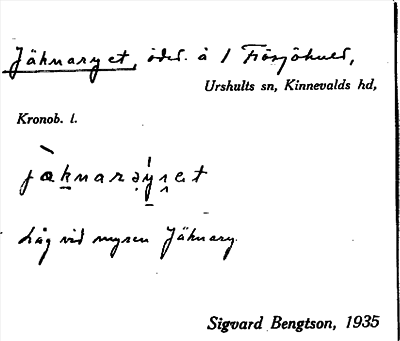 Jäknaryet, öded. å 1 Fiösjöhult,
Urshults sn, Kinnevalds hd,
Kronob. l.
jæknarəyret
Låg vid myren Jäknary.
Sigvard Bengtson, 1935